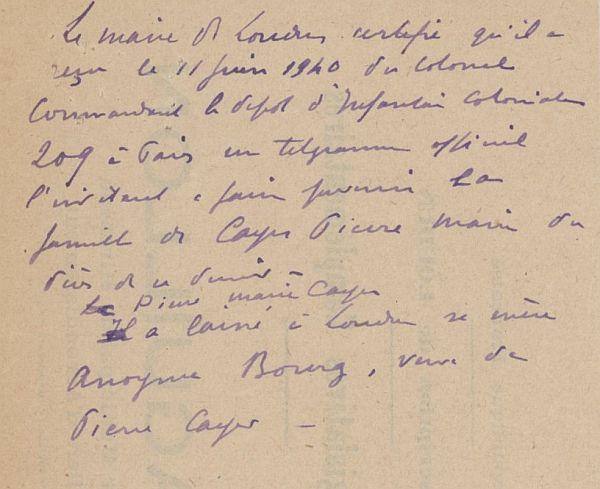 Le maire de Loudun certifie qu'il a
reçu le 11 juin 1940 du Colonel
Commandant le dépôt d'Infanterie Coloniale
209 à Paris un télégramme officiel
l'invitant à faire prévenir la
famille de Cayer Pierre Marie du
décès de ce dernier -
Pierre Marie Cayer
a laissé à Loudun sa mère
Anoyme Bourg, veuve de
Pierre Cayer -